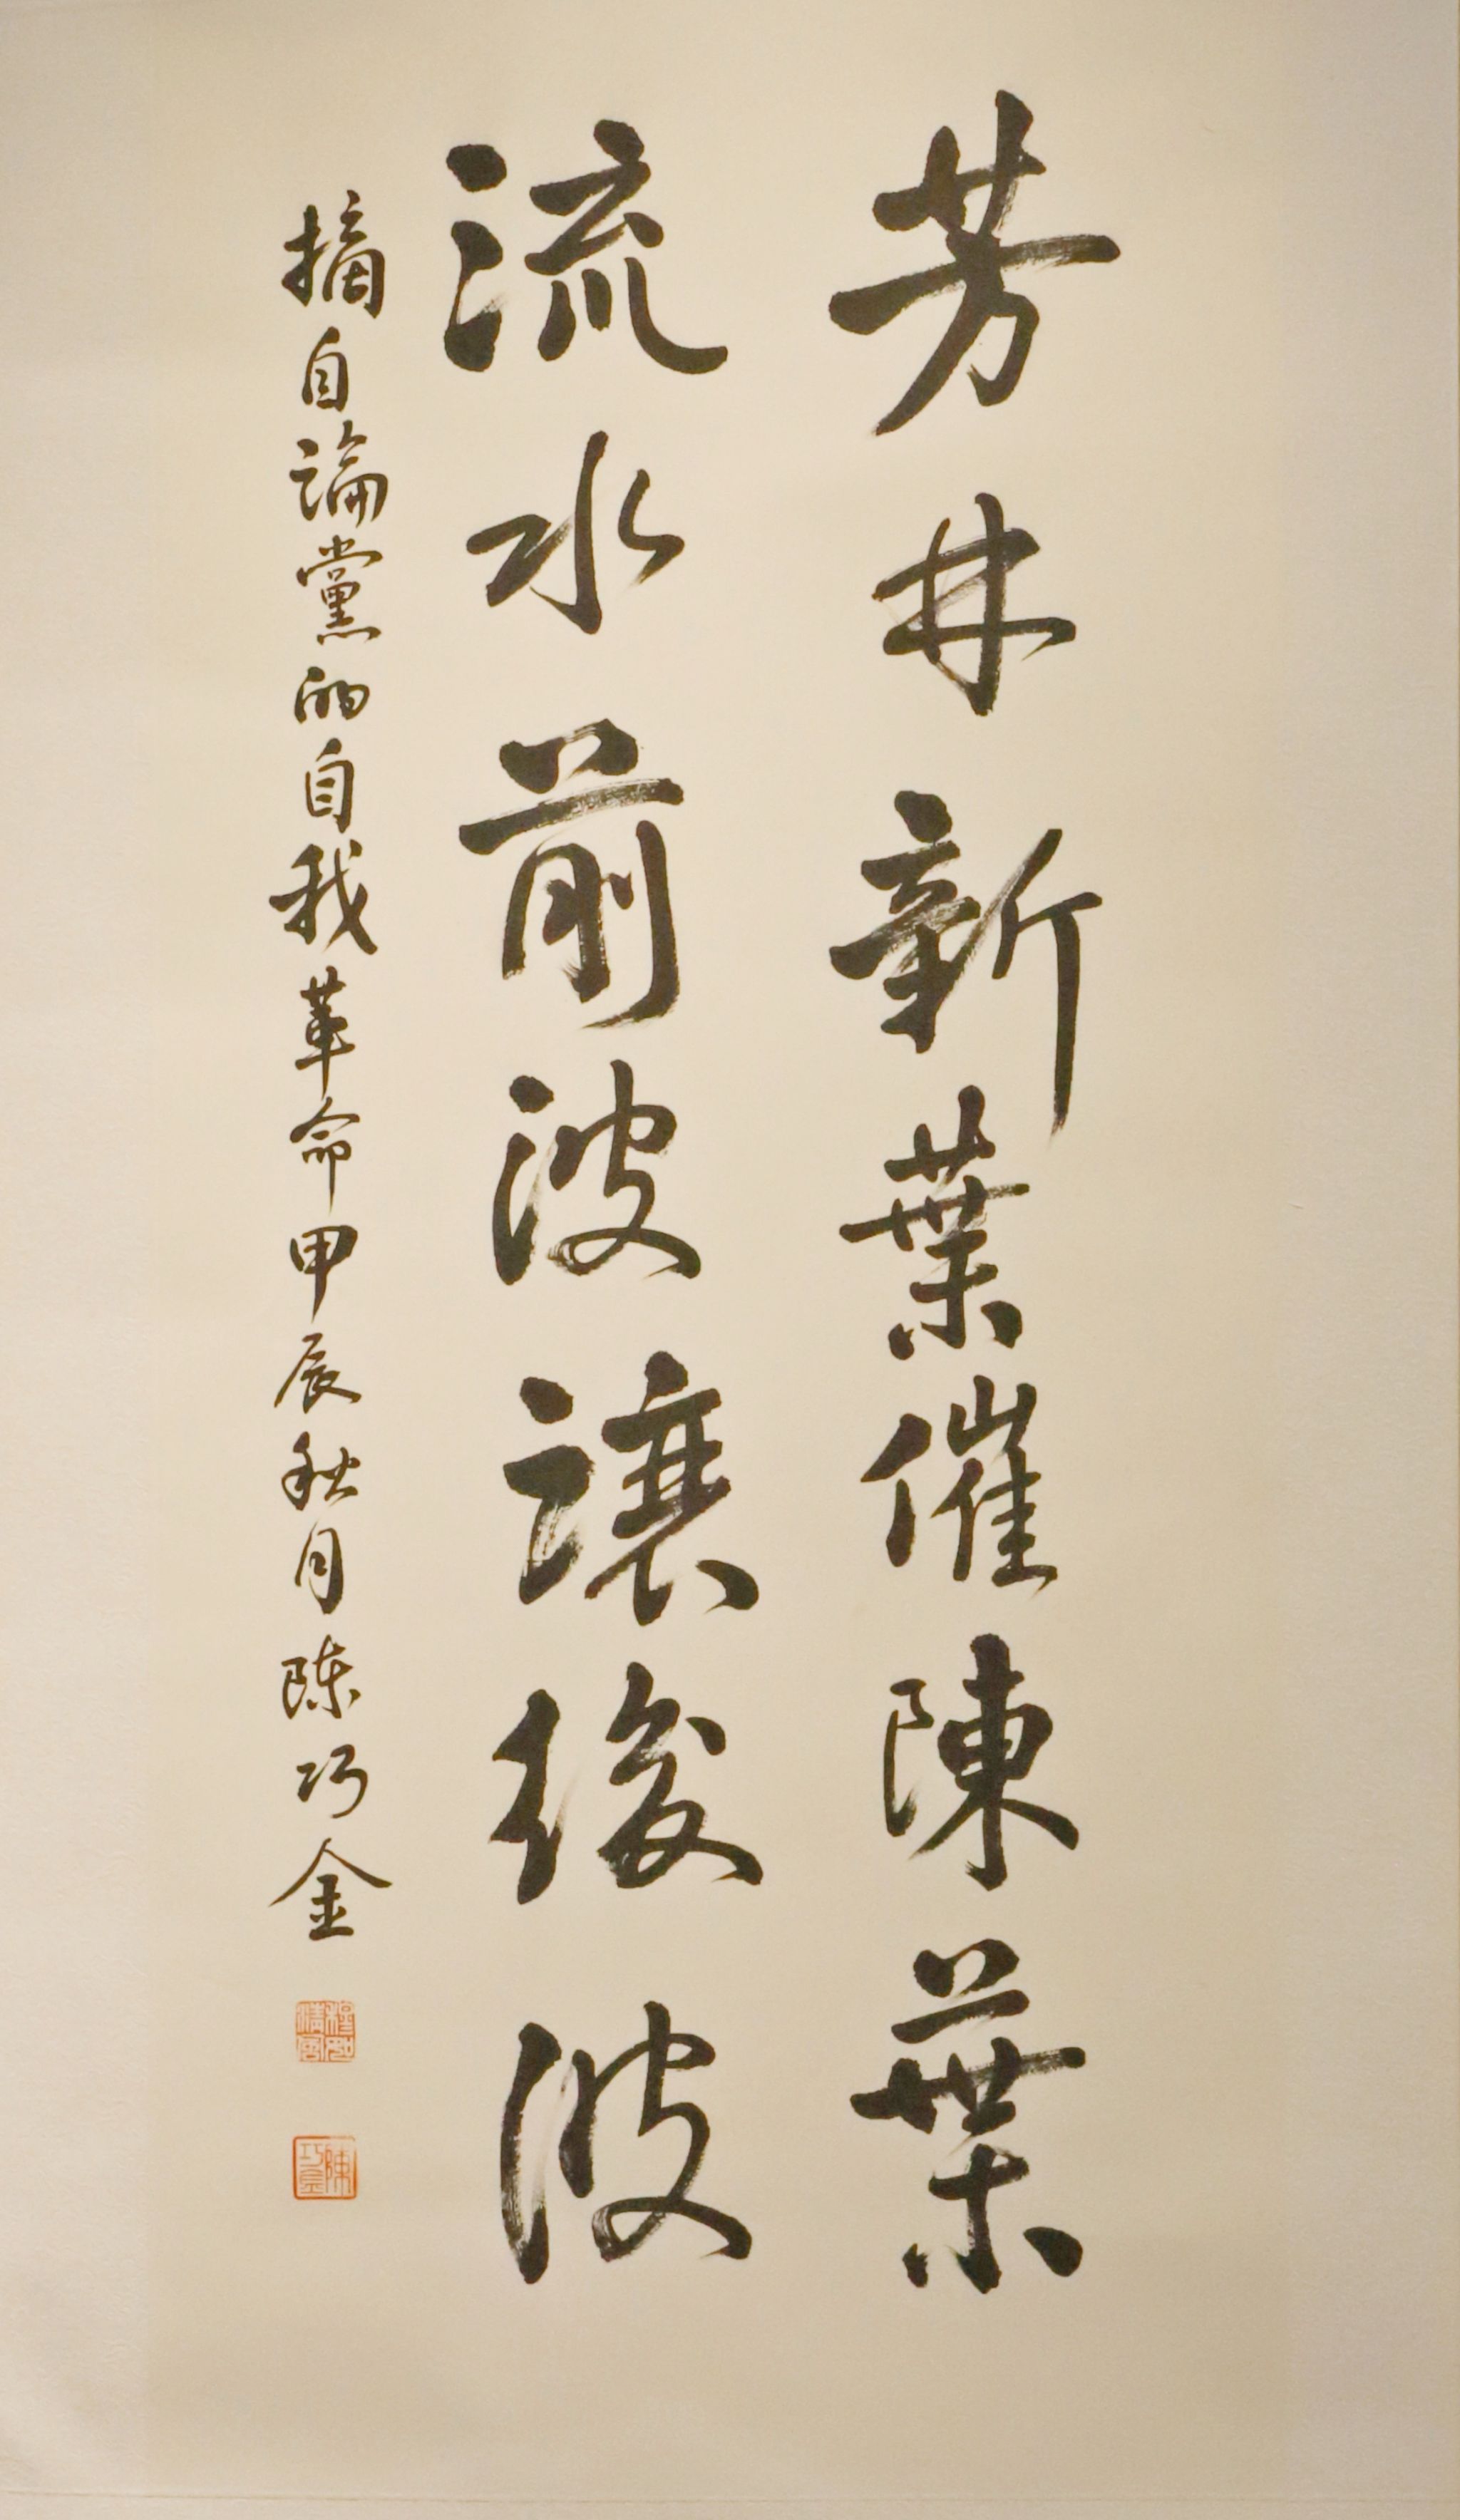 芳林新葉催陳葉
流水前波讓後波
摘自論黨的自我革命甲辰秋月陈巧金